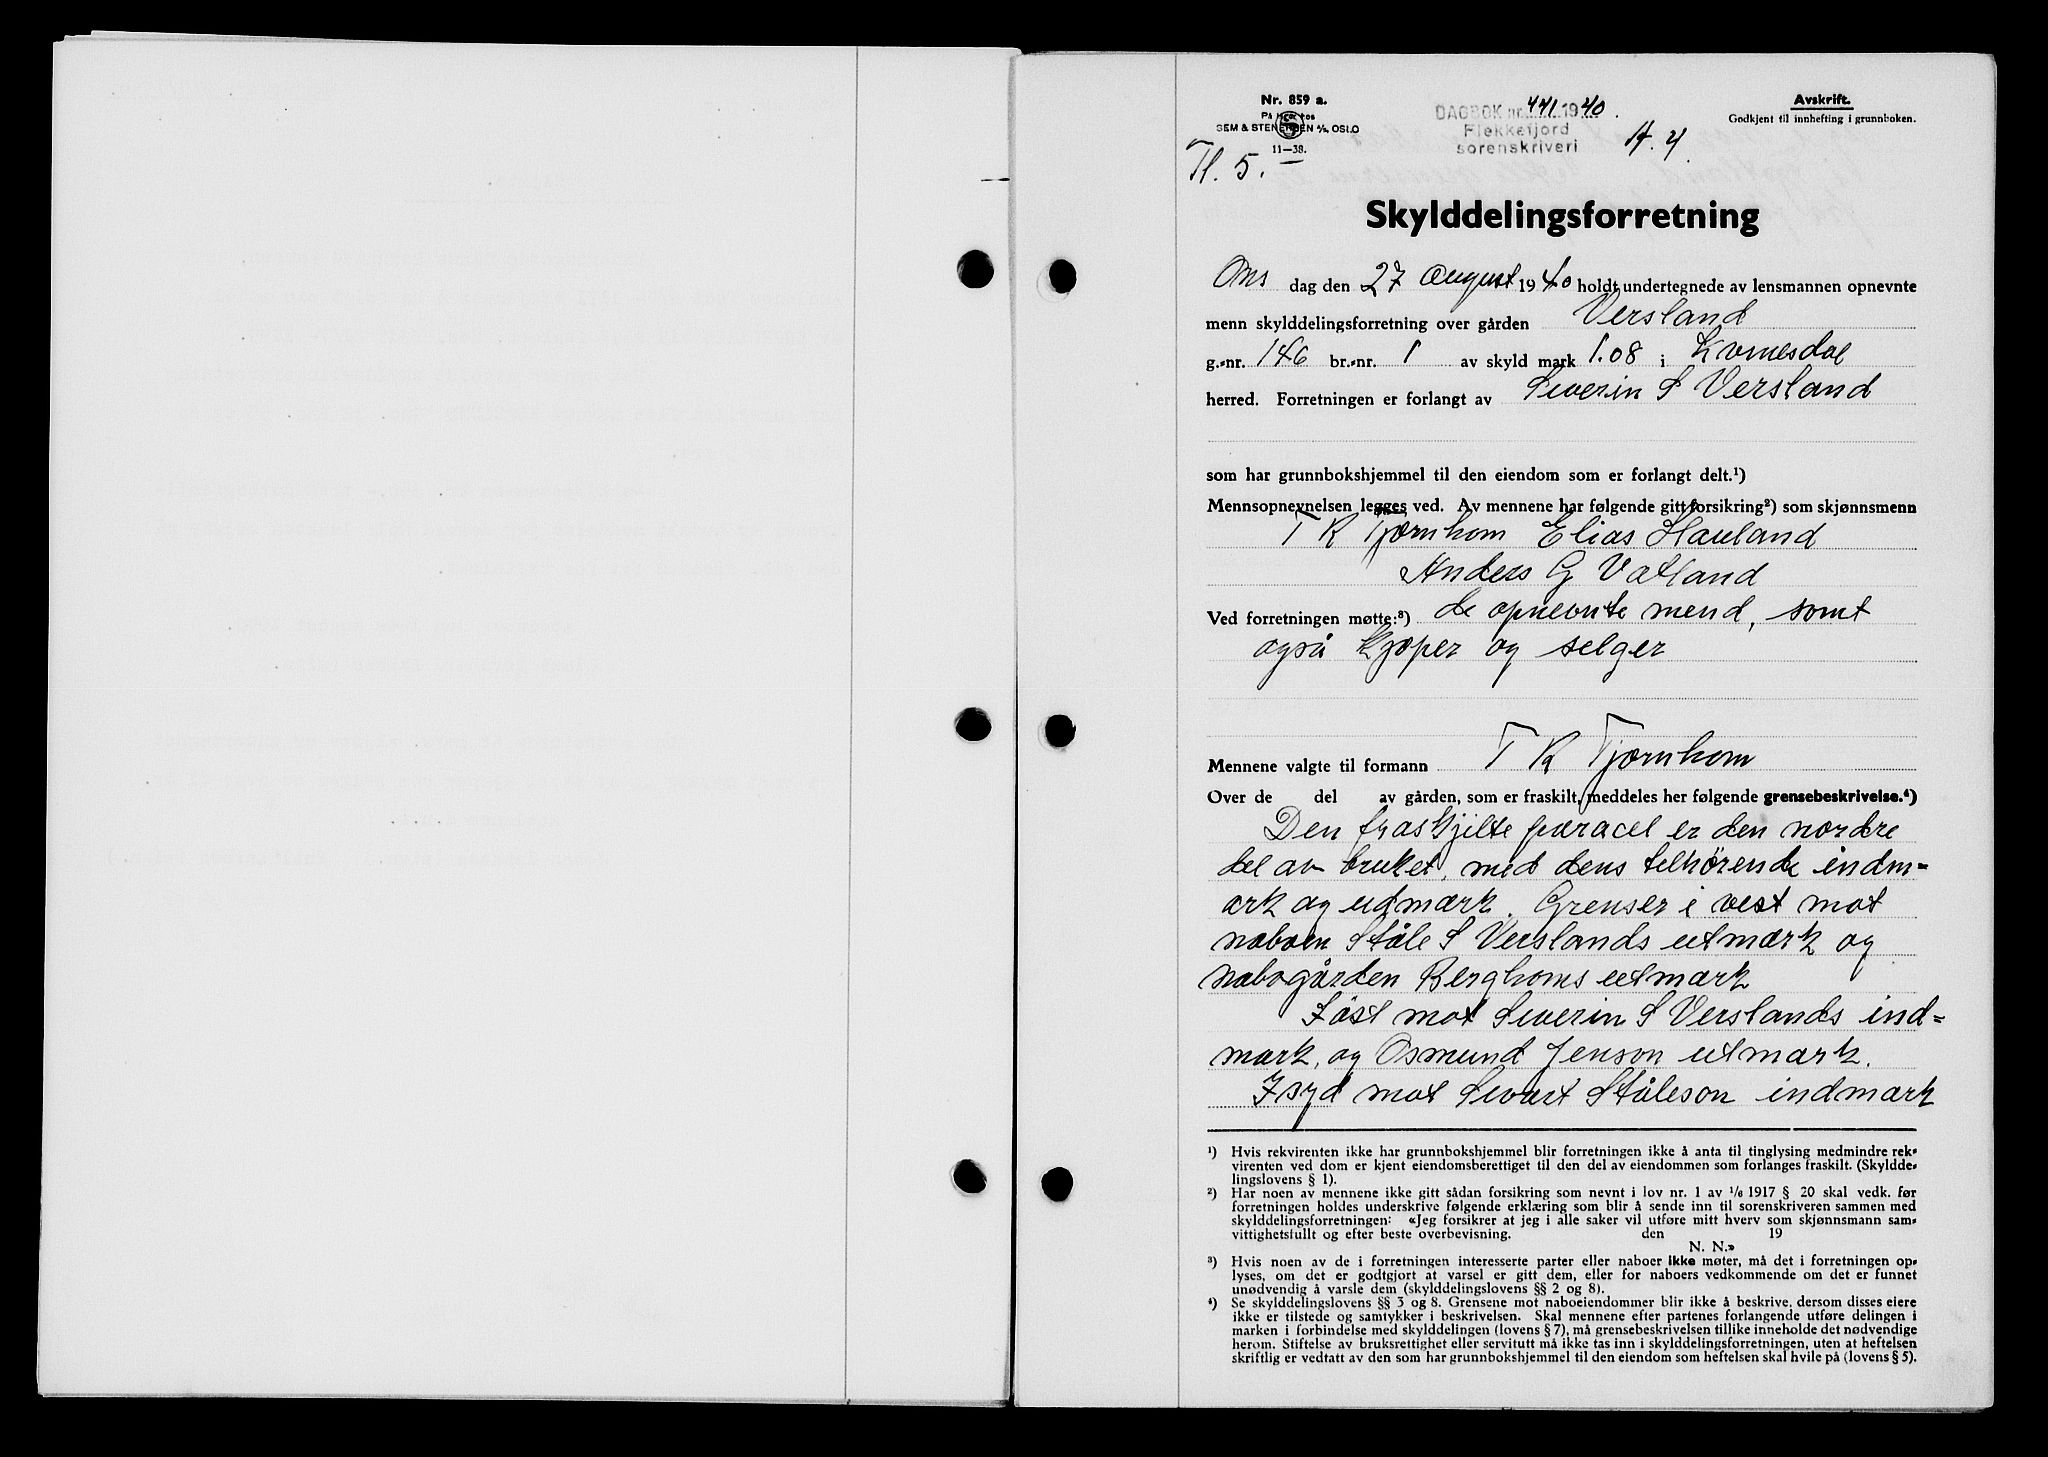 Nr. 859 a.
På lager hos
SEM & STENERSEN A/S, OSLO
11—38.
DAGBOK nr. 441 1940.
Flekkefjord
sorenskriveri
Avskrift.
Godkjent til innhefting i grunnboken.
Tl. 5.
Skylddelingsforretning
Ons dag den 27 August 1940 holdt undertegnede av lensmannen opnevnte
menn skylddelingsforretning over gården Versland
g.-nr. 146 br.-nr. 1 av skyld mark 1.08 i Kvinesdal
herred. Forretningen er forlangt av Severin S Versland
som har grunnbokshjemmel til den eiendom som er forlangt delt.¹)
Mennsopnevnelsen legges ved. Av mennene har følgende gitt forsikring²) som skjønnsmenn
T K Tjørnhom Elias Hauland
Anders G Vatland
Ved forretningen møtte:³) de opnevnte mend, somt
også kjøper og selger
Mennene valgte til formann T K Tjørnhom
Over de del av gården, som er fraskilt, meddeles her følgende grensebeskrivelse.⁴)
Den fraskjilte paracel er den nordre
del av bruket, med dens telhörende indm=
ark og udmark. Grenser i vest mot
naboen Ståle S Verslands utmark og
nabogården Berghoms utmark
I öst mot Severin S Verslands ind=
mark, og Osmund Jenson utmark.
I syd mot Sivert Ståleson indmark
¹) Hvis rekvirenten ikke har grunnbokshjemmel blir forretningen ikke å anta til tinglysing medmindre rek-
virenten ved dom er kjent eiendomsberettiget til den del av eiendommen som forlanges fraskilt. (Skyldde-
lingslovens § 1).
²) Har noen av mennene ikke gitt sådan forsikring som nevnt i lov nr. 1 av 1/6 1917 § 20 skal vedk. før
forretningen holdes underskrive følgende erklæring som blir å sende inn til sorenskriveren sammen med
skylddelingsforretningen: «Jeg forsikrer at jeg i alle saker vil utføre mitt hverv som skjønnsmann sam-
vittighetsfullt og efter beste overbevisning. den 19
N. N.»
³) Hvis noen av de i forretningen interesserte parter eller naboer ikke møter, må det i forretningen op-
lyses, om det er godtgjort at varsel er gitt dem, eller for naboers vedkommende om det er funnet
unødvendig å varsle dem (skylddelingslovens §§ 2 og 8).
⁴) Se skylddelingslovens §§ 3 og 8. Grensene mot naboeiendommer blir ikke å beskrive, dersom disses eiere
ikke er tilstede og samtykker i beskrivelsen. Skal mennene efter partenes forlangende utføre delingen i
marken i forbindelse med skylddelingen (lovens § 7), må grensebeskrivelsen tillike inneholde det nødvendige
herom. Stiftelse av bruksrettighet eller servitutt må ikke tas inn i skylddelingsforretningen, uten at heftelsen
skriftlig er vedtatt av den som har grunnbokshjemmel til den eiendom som heftelsen skal hvile på (lovens § 5).